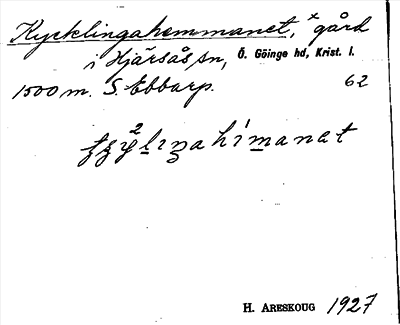 Kycklingahemmanet, × gård
i Hjärsås sn, Ö. Göinge hd, Krist. l.
1500 m. S Ebbarp. 62
H. Areskoug 1927